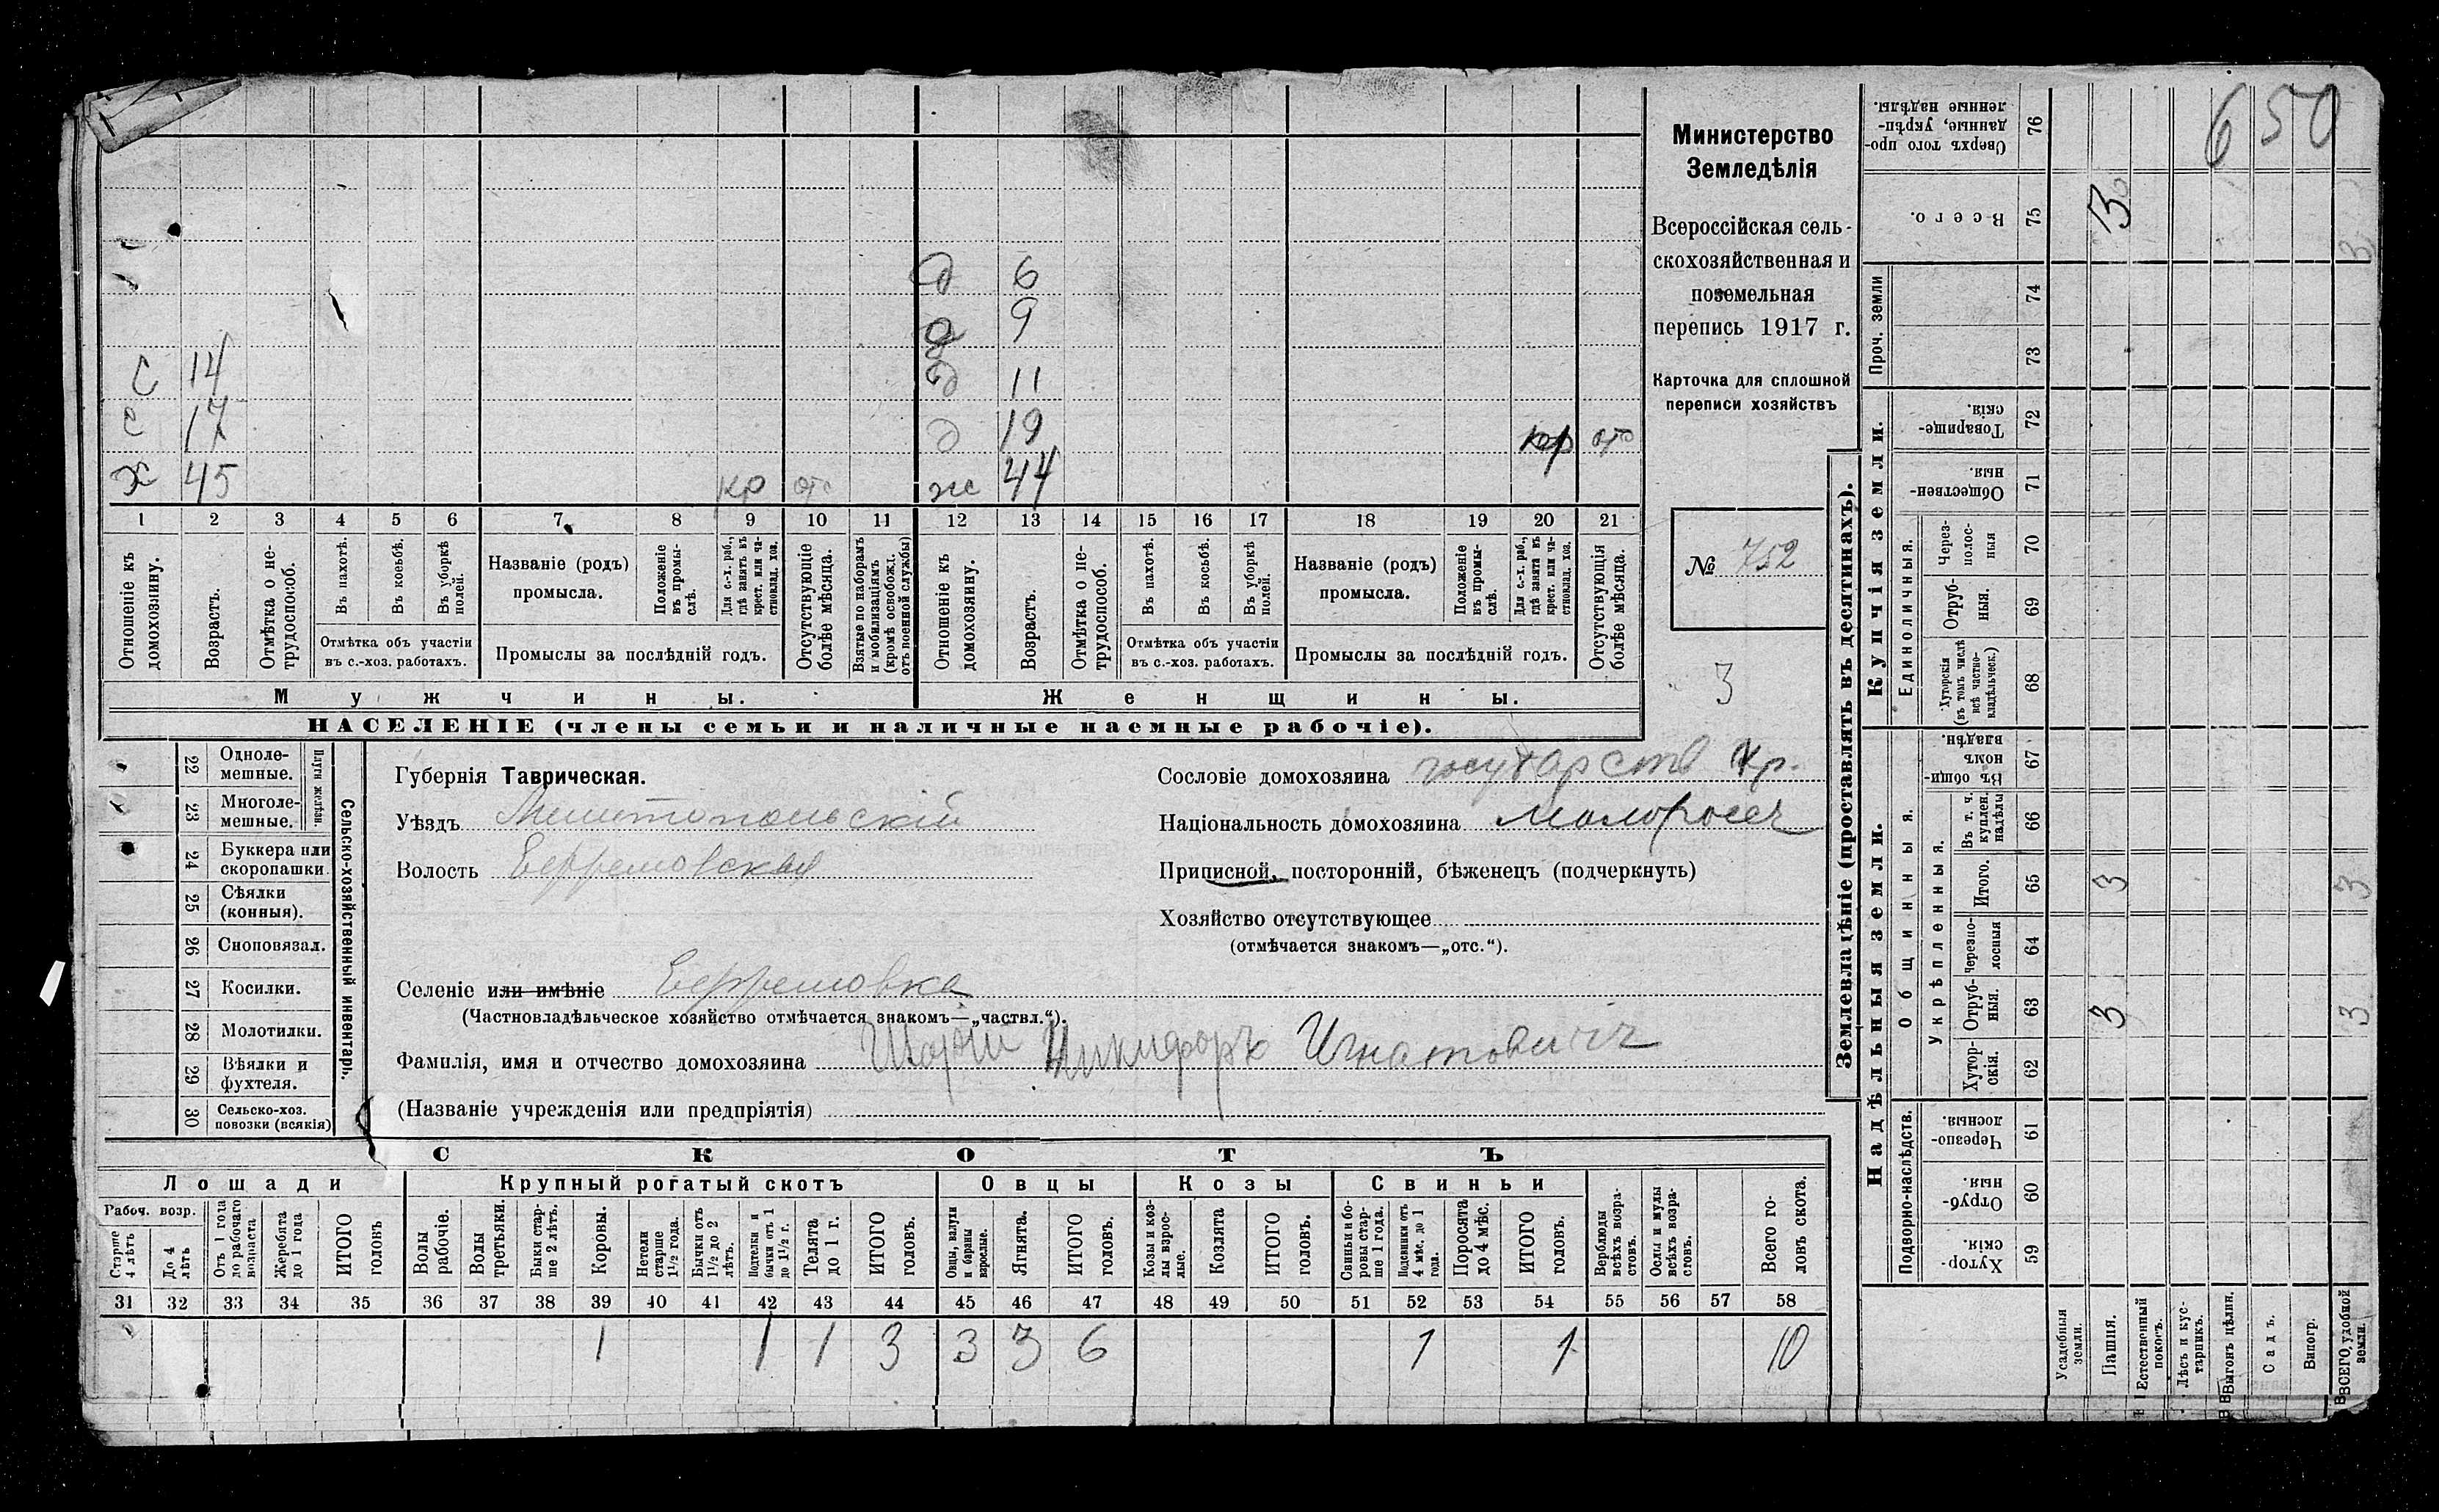 Министерство
Земледѣлія
Всероссійская сель-
скохозяйственная и
поземельная
перепись 1917 г.
Карточка для сплошной
переписи хозяйствъ
№ 752
3
д 6
д 9
С 14 д 11
с 17 д 19 кр отс
Х 45 кр отс ж 44
1 2 3 4 5 6 7 8 9 10 11 12 13 14 15 16 17 18 19 20 21
Отношеніе къ домохозяину.
Возрастъ.
Отмѣтка о не-трудоспособ.
Въ пахотѣ.
Въ косьбѣ.
Въ уборкѣ полей.
Отмѣтка объ участіи
въ с.-хоз. работахъ.
Названіе (родъ)
промысла.
Положеніе въ промы-слѣ.
Для с.-х. раб., гдѣ занятъ въ крест. или ча-стновлад. хоз.
Промыслы за послѣдній годъ.
Отсутствующіе болѣе мѣсяца.
Взятые по наборамъ и мобилизаціямъ (кромѣ освобожд. отъ военной службы)
Отношеніе къ домохозяину.
Возрастъ.
Отмѣтка о не-трудоспособ.
Въ пахотѣ.
Въ косьбѣ.
Въ уборкѣ полей.
Отмѣтка объ участіи
въ с.-хоз. работахъ.
Названіе (родъ)
промысла.
Положеніе въ промы-слѣ.
Для с.-х. раб., гдѣ занята въ крест. или ча-стновлад. хоз.
Промыслы за послѣдній годъ.
Отсутствующія болѣе мѣсяца.
Мужчины. Женщины.
НАСЕЛЕНІЕ (члены семьи и наличные наемные рабочіе).
Сельско-хозяйственный инвентарь.
Плуги желѣзн.
22 Одноле-мешные.
23 Многоле-мешные.
24 Буккера или скоропашки.
25 Сѣялки (конныя).
26 Сноповязал.
27 Косилки.
28 Молотилки.
29 Вѣялки и фухтеля.
30 Сельско-хоз. повозки (всякія)
Губернія Таврическая.
Уѣздъ Мелитопольскій
Волость Ефремовская
Селеніе или имѣніе Ефремовка
(Частновладѣльческое хозяйство отмѣчается знакомъ—„частвл.“).
Фамилія, имя и отчество домохозяина Шорій Никифоръ Игнатовичъ
(Названіе учрежденія или предпріятія)
Сословіе домохозяина государств кр.
Національность домохозяина малороссъ
Приписной, посторонній, бѣженецъ (подчеркнуть)
Хозяйство отсутствующее
(отмѣчается знакомъ—„отс.“).
СКОТЪ
Лошади Крупный рогатый скотъ Овцы Козы Свиньи
Рабоч. возр.
Старше 4 лѣтъ
До 4 лѣтъ
Отъ 1 года до рабочаго возраста
Жеребята до 1 года
ИТОГО головъ
Волы рабочіе.
Волы третьяки.
Быки стар-ше 2 лѣтъ.
Коровы.
Нетели старше 1½ года.
Бычки отъ 1½ до 2 лѣтъ.
Подтелки и бычки отъ 1 до 1½ г.
Телята до 1 г.
ИТОГО головъ.
Овцы, валухи и бараны взрослые.
Ягнята.
ИТОГО головъ.
Козы и коз-лы взрос-лые.
Козлята
ИТОГО головъ.
Свиньи и бо-ровы стар-ше 1 года.
Подсвинки отъ 4 мѣс. до 1 года.
Поросята до 4 мѣс.
ИТОГО головъ.
Верблюды всѣхъ возра-стовъ.
Ослы и мулы всѣхъ возра-стовъ.
Всего го-ловъ скота.
31 32 33 34 35 36 37 38 39 40 41 42 43 44 45 46 47 48 49 50 51 52 53 54 55 56 57 58
1 1 1 3 3 3 6 1 1 10
Землевладѣніе (проставлять въ десятинахъ).
Надѣльныя земли.
Купчія земли.
Подворно-наслѣдств.
Общинныя.
Укрѣпленныя.
Единоличныя.
Проч. земли
59 Хутор-скія.
60 Отруб-ныя.
61 Черезпо-лосныя.
62 Хутор-скія.
63 Отруб-ныя. 3 3
64 Черезпо-лосныя
65 Итого. 3 3
66 Въ т. ч. куплен. надѣлы
67 Въ общи-номъ владѣн.
68 Хуторскія (въ томъ числѣ всѣ частно-владѣльческ.)
69 Отруб-ныя.
70 Через-полос-ныя
71 Обществен-ныя.
72 Товарище-скія.
73
74
75 Всего. 3
76 Сверхъ того про-данные, укрѣп-ленные надѣлы.
650
Усадебныя земли.
Пашня.
Естественный покосъ.
Лѣсъ и кус-тарникъ.
Выгонъ цѣлин.
Садъ.
Виногр.
ВСЕГО, удобной земли.